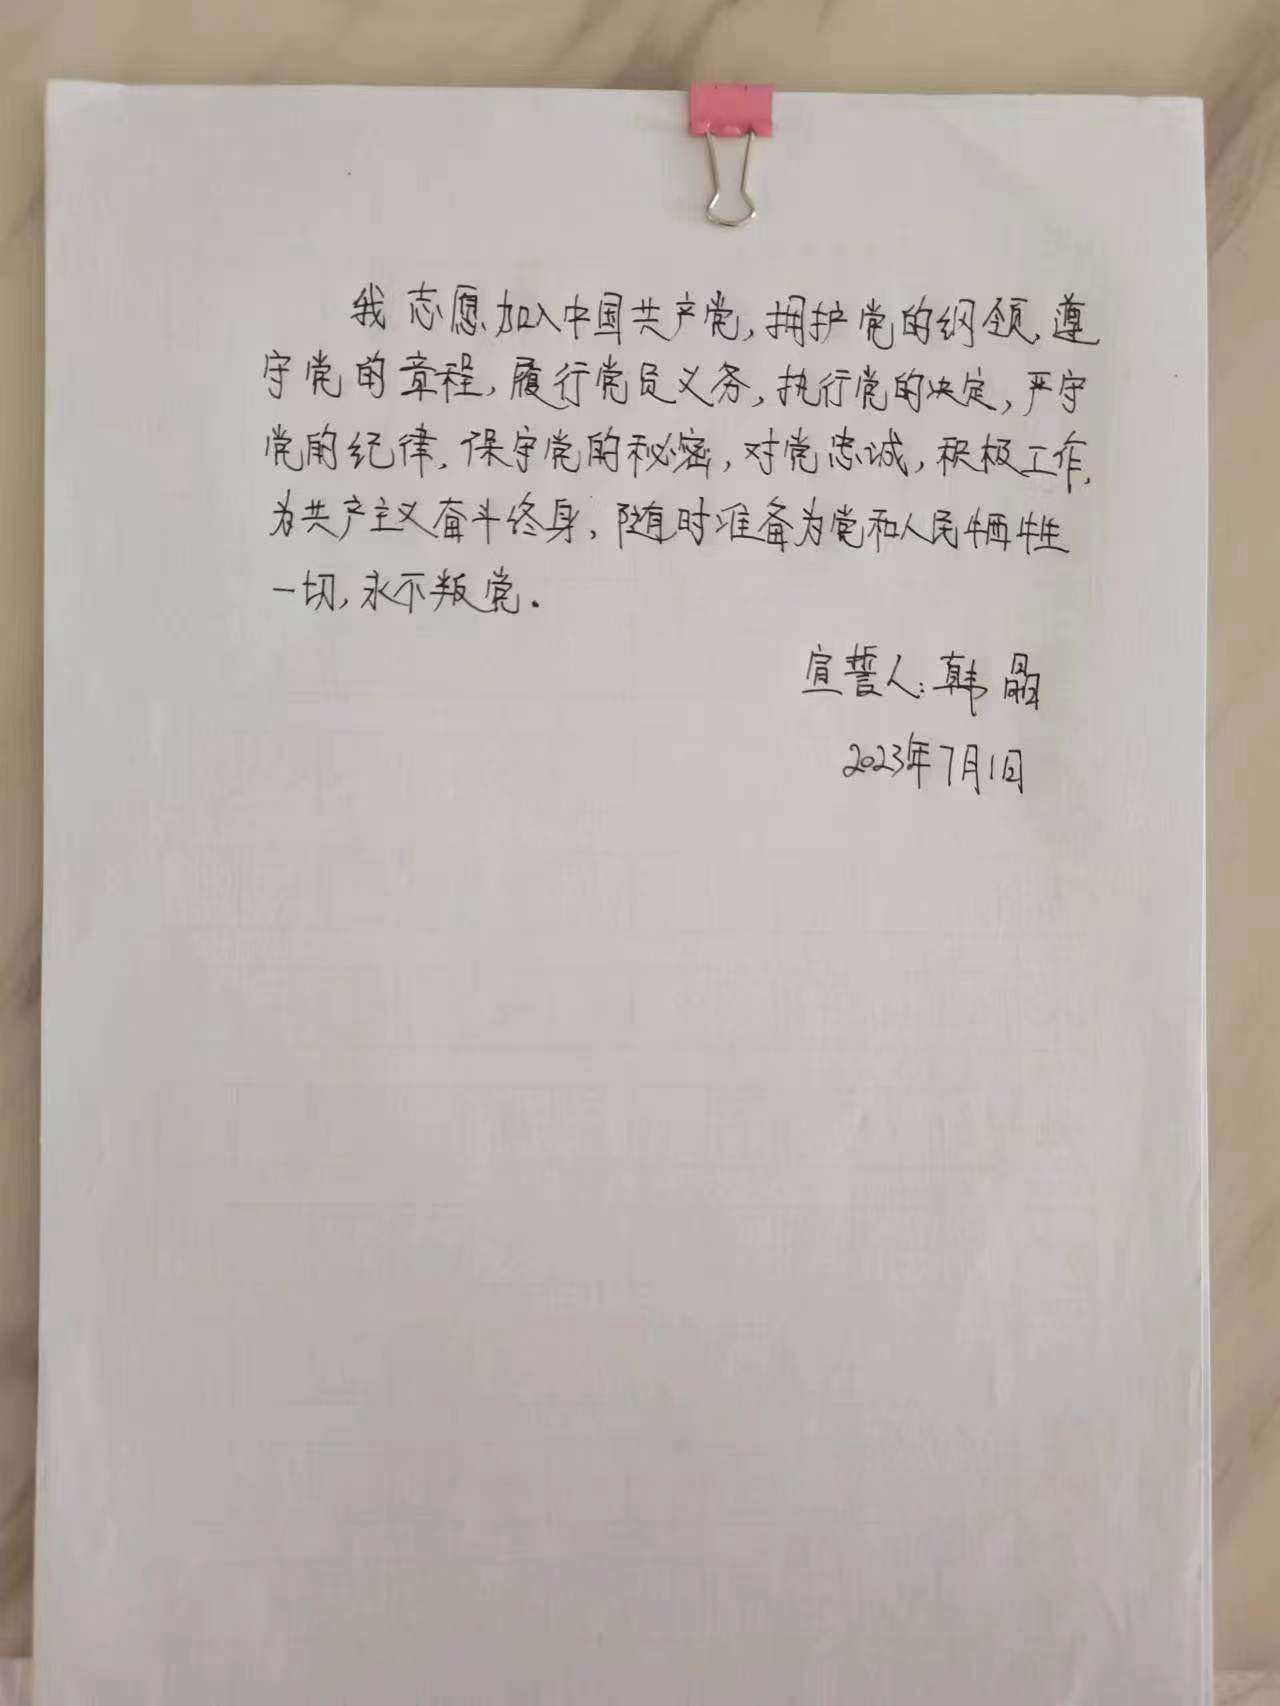 我志愿加入中国共产党,拥护党的纲领,遵
守党的章程,履行党员义务,执行党的决定,严守
党的纪律,保守党的秘密,对党忠诚,积极工作,
为共产主义奋斗终身,随时准备为党和人民牺牲
一切,永不叛党.
宣誓人:韩晶
2023年7月1日